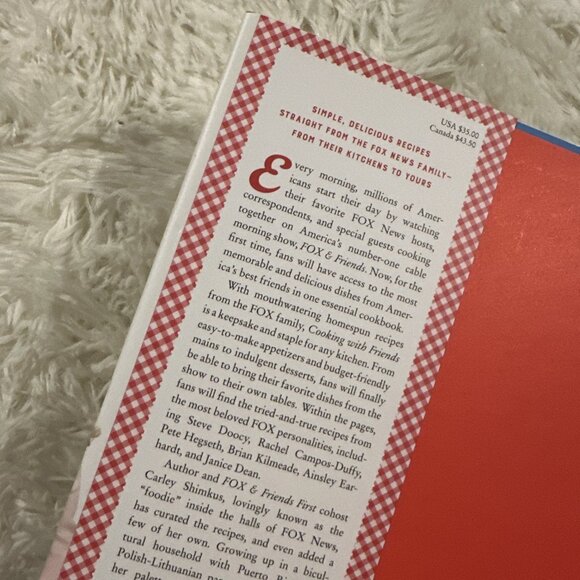 USA $35.00
Canada $43.50
SIMPLE, DELICIOUS RECIPES
STRAIGHT FROM THE FOX NEWS FAMILY—
FROM THEIR KITCHENS TO YOURS
Every morning, millions of Amer-
icans start their day by watching
their favorite FOX News hosts,
correspondents, and special guests cooking
together on America's number-one cable
morning show, FOX & Friends. Now, for the
first time, fans will have access to the most
memorable and delicious dishes from Amer-
ica's best friends in one essential cookbook.
With mouthwatering homespun recipes
from the FOX family, Cooking with Friends
is a keepsake and staple for any kitchen. From
easy-to-make appetizers and budget-friendly
mains to indulgent desserts, fans will finally
be able to bring their favorite dishes from the
show to their own tables. Within the pages,
fans will find the tried-and-true recipes from
the most beloved FOX personalities, includ-
ing Steve Doocy, Rachel Campos-Duffy,
Pete Hegseth, Brian Kilmeade, Ainsley Ear-
hardt, and Janice Dean.
Author and FOX & Friends First cohost
Carley Shimkus, lovingly known as the
"foodie" inside the halls of FOX News,
has curated the recipes, and even added a
few of her own. Growing up in a bicul-
tural household with Puerto
Polish-Lithuanian
her